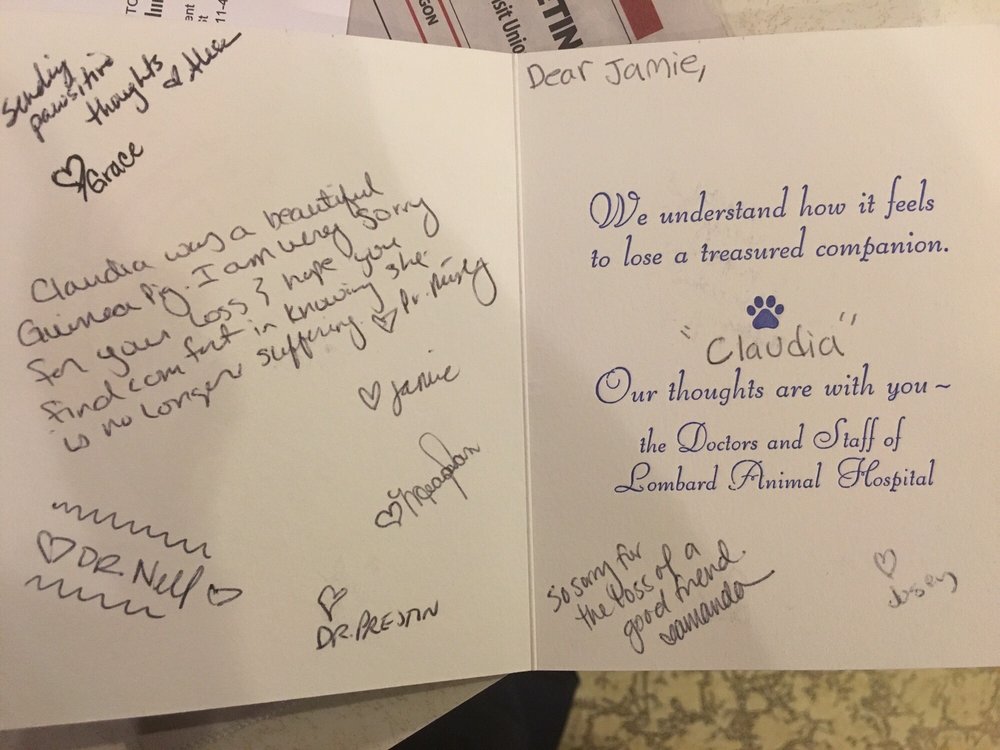 TO
11-4
GON
ETIN
sit Unio
Sending
pawsitive
thoughts
Grace
Claudia was a beautiful
Guinea Pig. I am very sorry
for your loss & hope you
find comfort in knowing she
is no longer suffering. Dr.
Jamie
Meaghan
DR. Nell
DR. PRESTIN
Dear Jamie,
We understand how it feels
to lose a treasured companion.
"Claudia"
Our thoughts are with you ~
the Doctors and Staff of
Lombard Animal Hospital
So sorry for
the loss of a
good friend.
amanda
Josey